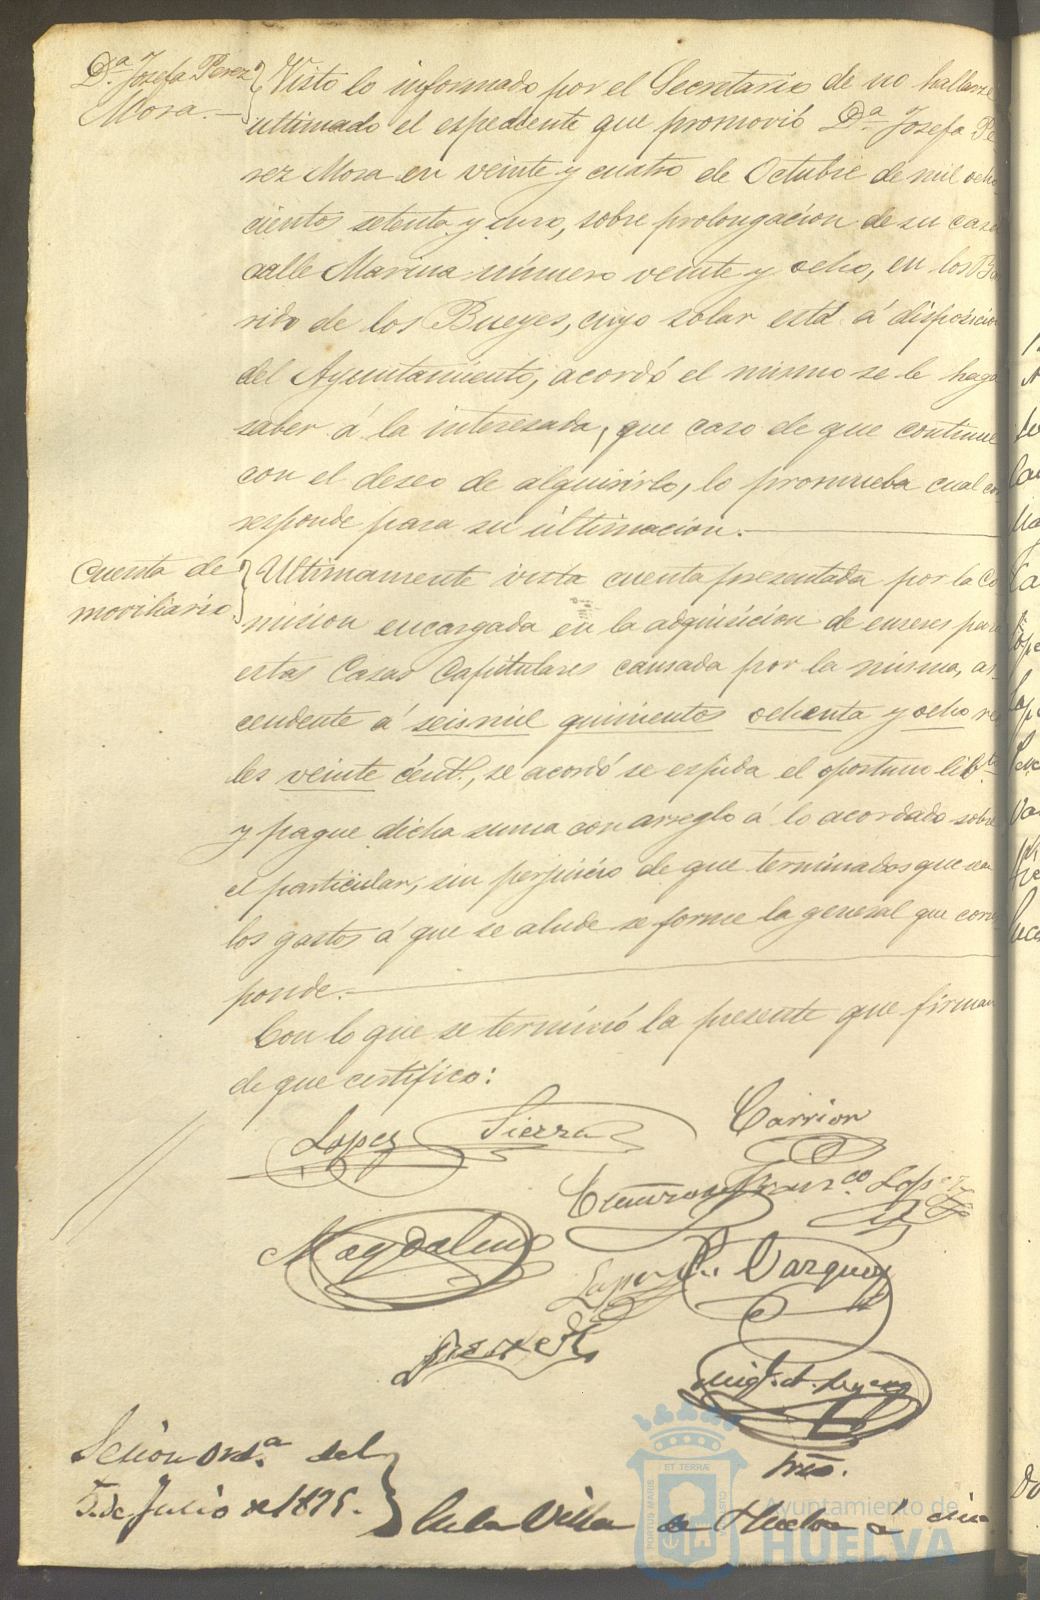 Dª Josefa Perez
Mora.
Visto lo informado por el Secretario de no hallarse
ultimado el espediente que promovió Dª Josefa Pe
rez Mora en veinte y cuatro de Octubre de mil ocho
cientos setenta y uno, sobre prolongacion de su casa
calle Marina número veinte y ocho, en los
de los Bueyes, cuyo solar está á disposicion
del Ayuntamiento, acordó el mismo se le haga
saber á la interesada, que caso de que continue
con el deseo de alquirirlo, lo promueba cual co
rresponde para su últimacion.
Cuenta de
moviliario
Ultimamente vista cuenta presentada por la Co
mision encargada en la adquisicion de enseres para
estas Casas Capitulares causada por la misma, as
cendente á seis mil quinientos ochenta y ocho rea
les veinte cént.s, se acordó se espida el oportuno lib.to
y pague dicha suma con arreglo á lo acordado sobre
el particular, sin perjuicio de que terminados que sean
los gastos á que se alude se forme la general que corres
ponde.
Con lo que se terminó la presente que firman
de que certifico:
Lopez Sierra Carrion
Franco Lopez
Magdaleno
Lopez Vazquez
Srio.
Sesion ord.ª del
5 de Julio de 1875.
En la Villa de Huelva á cin
PORTUS MARIS
ET TERRÆ
CUSTODIO
Ayuntamiento de
HUELVA